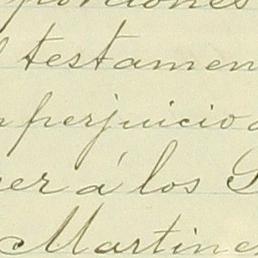 porciones
testamen
perjuicio
er á los S
Martine